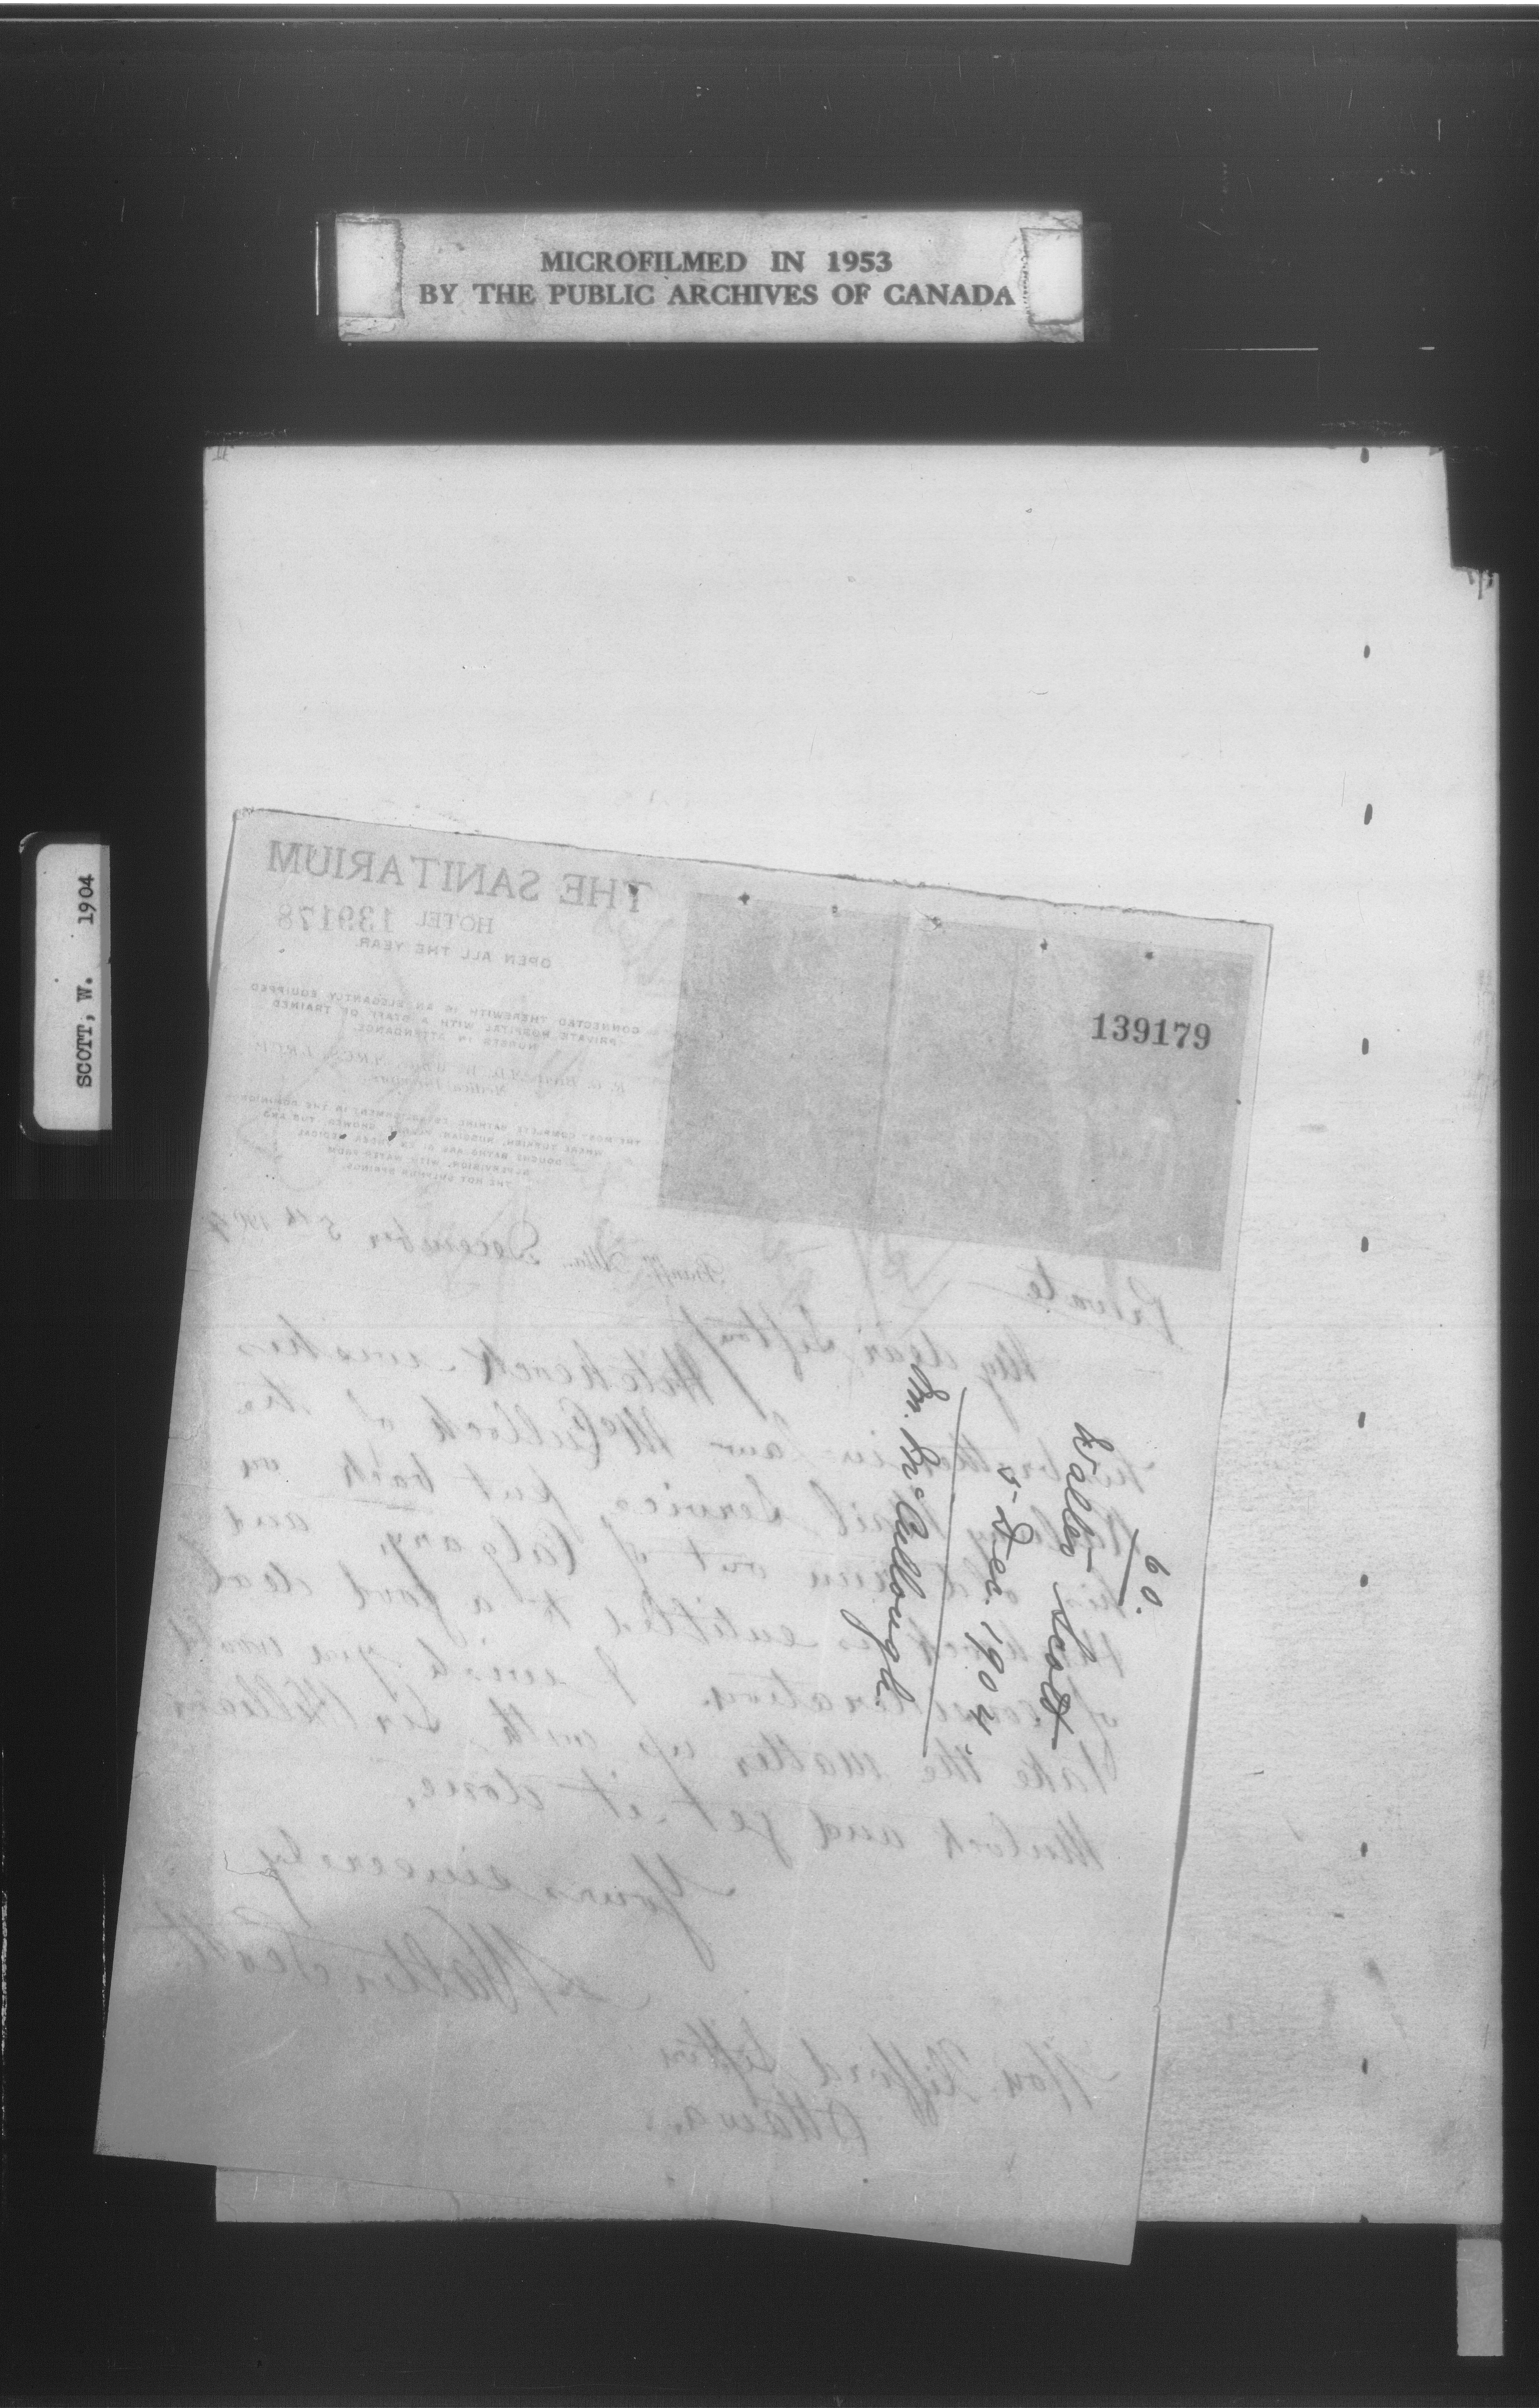 MICROFILMED IN 1953
BY THE PUBLIC ARCHIVES OF CANADA
SCOTT, W. 1904
THE SANITARIUM
HOTEL 139178
OPEN ALL THE YEAR
CONNECTED THEREWITH IS AN ELEGANTLY EQUIPPED
PRIVATE HOSPITAL WITH A STAFF OF TRAINED
NURSES IN ATTENDANCE
Medical
THE MOST COMPLETE BATHING ESTABLISHMENT IN THE DOMINION
WHERE TURKISH, RUSSIAN, SHOWER, TUB AND
DOUCHE BATHS ARE UNDER MEDICAL
SUPERVISION, WITH WATER FROM
THE HOT SULPHUR SPRINGS.
139179
Banff, Alta. December 5th 1904
Private
My dear Sifton,
Hitchcock wishes
his brother in law McCulloch of the
Railway Mail Service, put back on
his old run out of Calgary, and
Hitchcock is entitled to a good deal
of consideration. I wish you would
take the matter up with Sir William
Mulock and get it done.
Yours sincerely
Walter Scott
Hon. Clifford Sifton
Ottawa.
60.
Walter Scott
5-Dec. 1904.
Mr. McCullough.